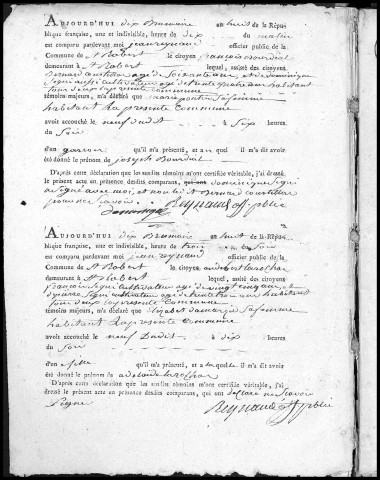 AUJOURD'HUI dix Brumaire an huit de la Répu-
blique française, une et indivisible, heure de dix du matin
est comparu pardevant moi jean reynaud officier public de la
Commune de St Robert le citoyen françois bourdeil
demeurant à St Robert lequel, assisté des citoyens
Bernard Coutillou age de Soixante ans et de dominique
Segui aussi cultivateur age de trente habitant
tous deux la presente commune
témoins majeurs, m'a déclaré que marie Sa femme
habitant La presente Commune
avoit accouché le neuf dudit à Six heures
du Soir
d'un garcon qu'il m'a présenté, et auquel il m'a dit avoir
été donné le prénom de joseph Bourdeil
D'après cette déclaration que les susdits témoins m'ont certifiée véritable, j'ai dressé
le présent acte en présence desdits comparans, qui ont dominique Segui
Signé avec moi, et non ledit Bernard Coutillou
pour ne Savoir
Reynaud off public
AUJOURD'HUI dix Brumaire an huit de la Répu-
blique française, une et indivisible, heure de trois du Soir
est comparu pardevant moi jean reynaud officier public de la
Commune de St Robert le citoyen
demeurant à St Robert lequel, assisté des citoyens
françois Segui cultivateur age de vingt cinq ans, et
de pierre Segui cultivateur age de trente ans habitant
tous deux la presente Commune
témoins majeurs, m'a déclaré que Sa femme
habitant La presente Commune
avoit accouché le neuf Dudit à dix heures
du Soir
d'un fille qu'il m'a présenté, et auquelle il m'a dit avoir
été donné le prénom de adelaide
D'après cette déclaration que les susdits témoins m'ont certifiée véritable, j'ai
dressé le présent acte en présence desdits comparans, qui ont declaré ne Savoir
Signe
Reynaud off public